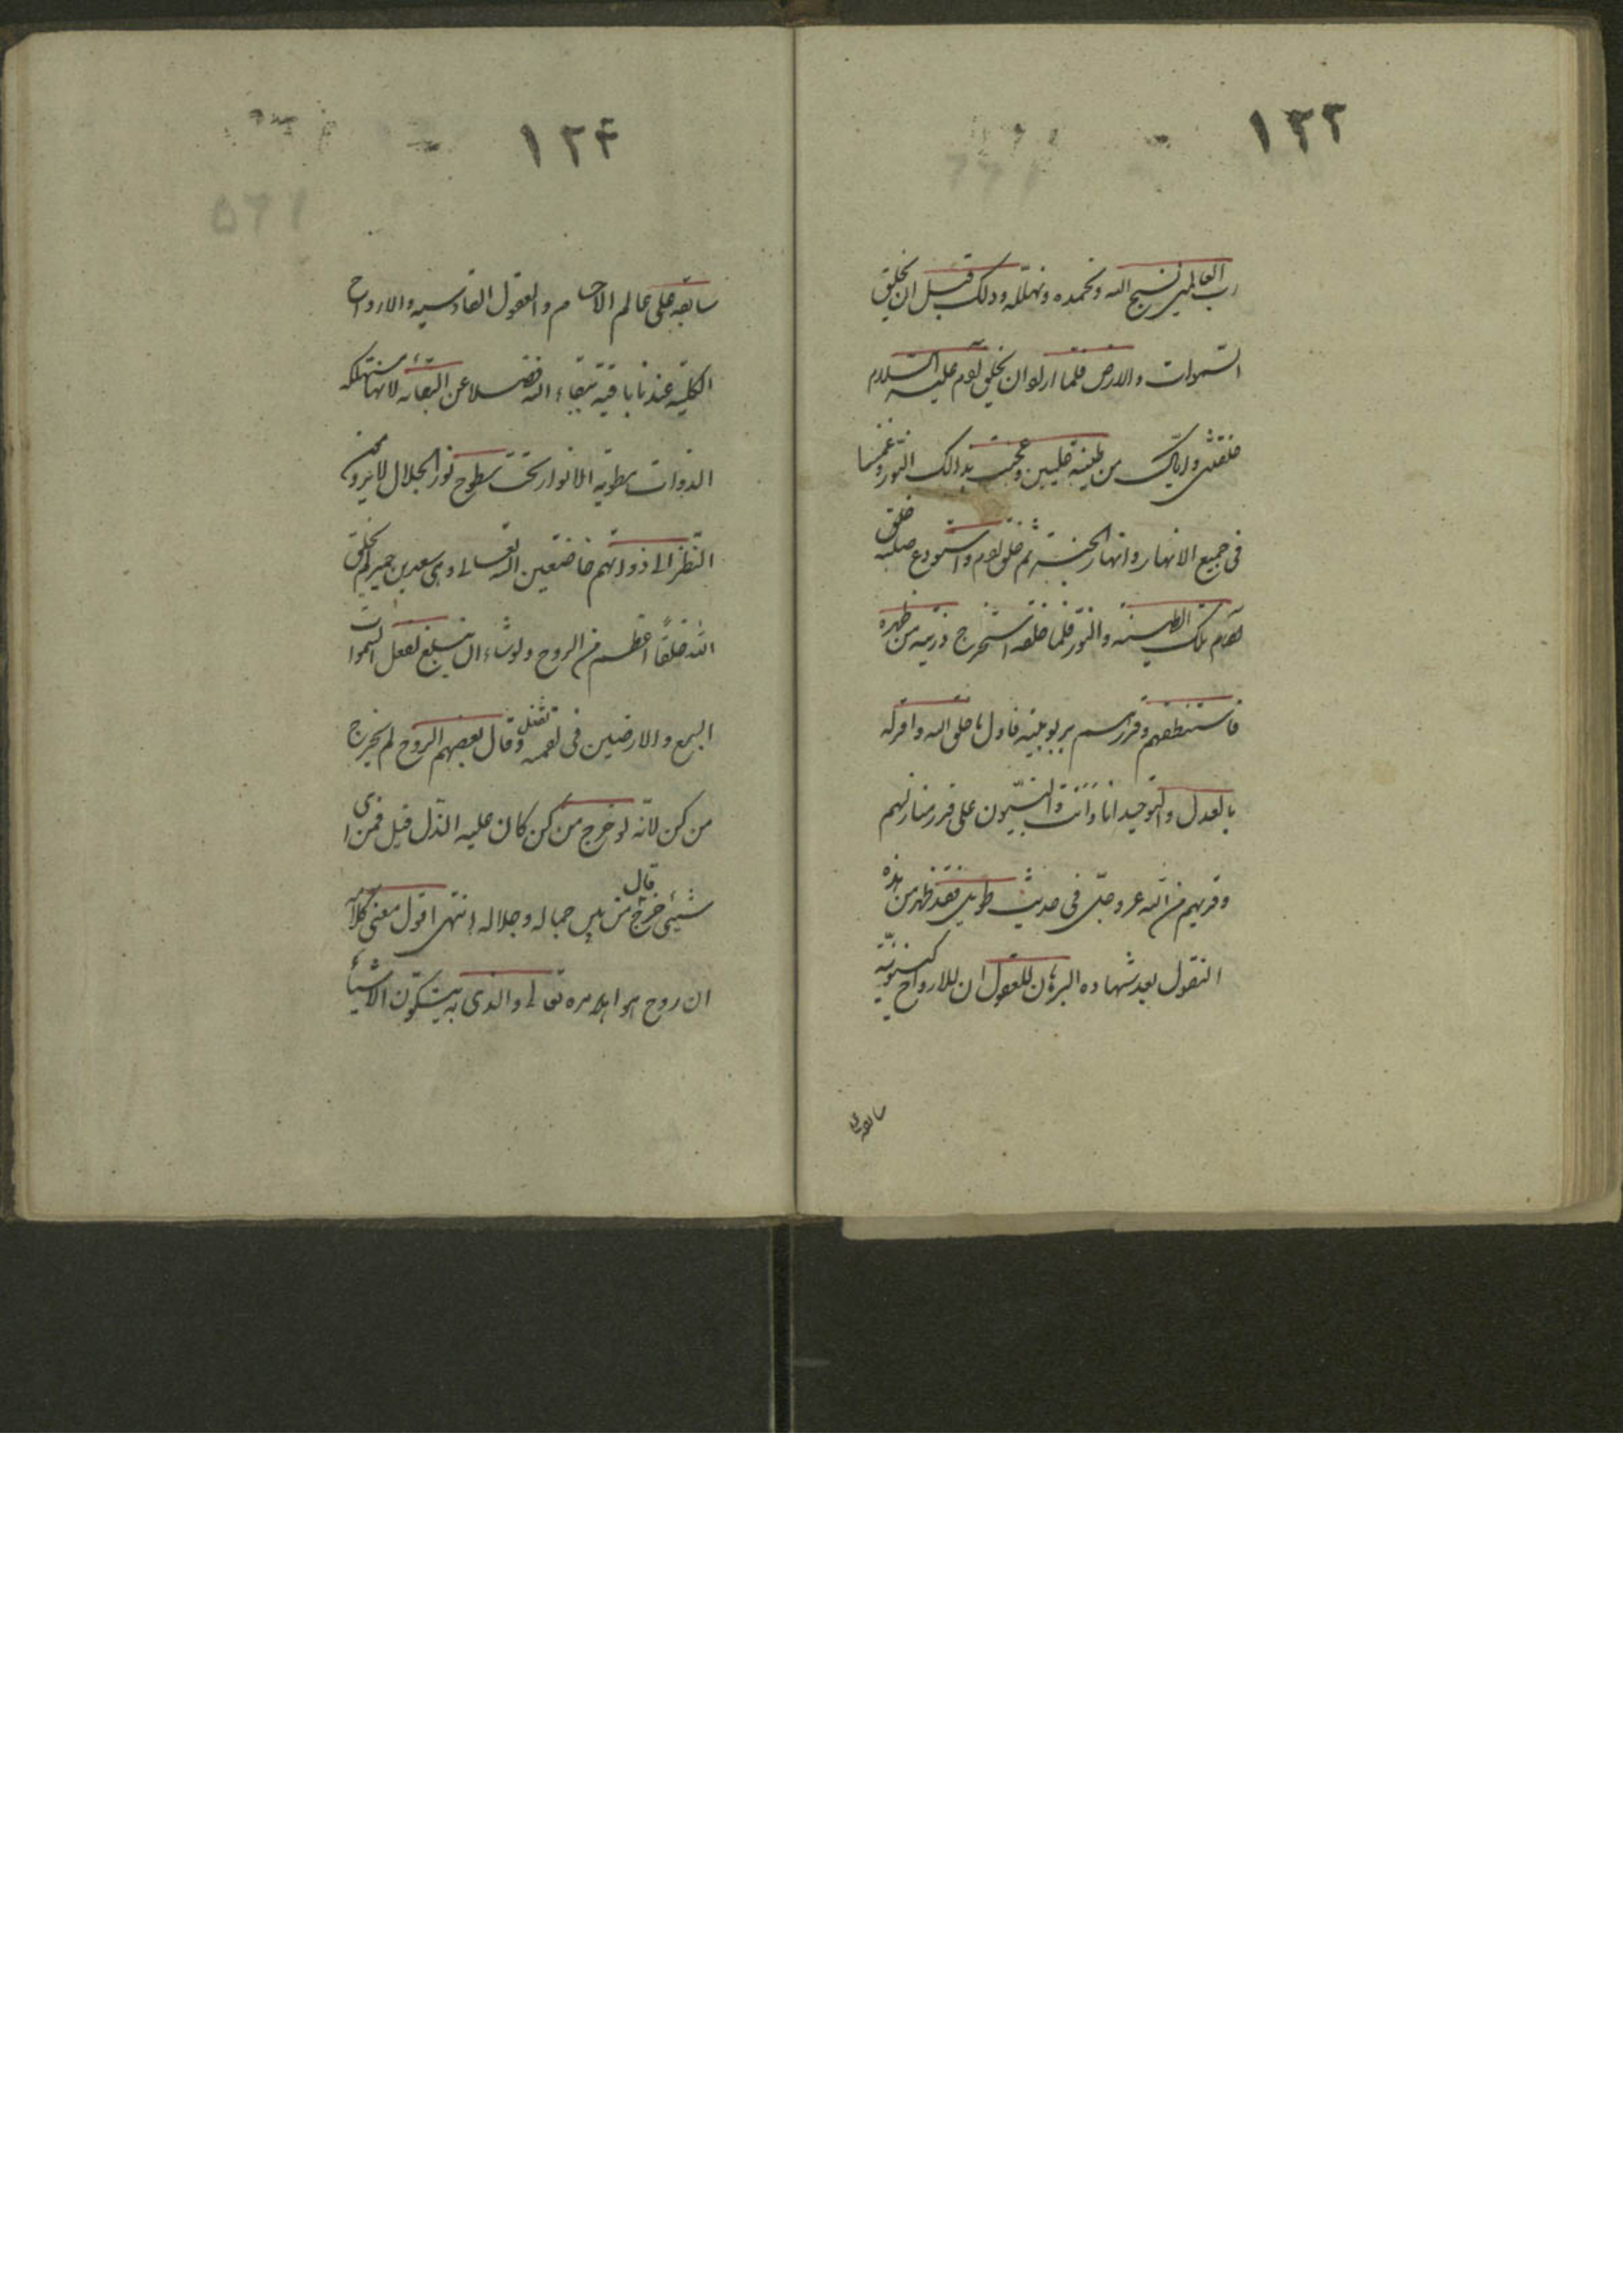 ١٢٣
رب العالمين نسبح الله ونحمده ونهلله وذلك قبل ان يخلق
السموات والارض فلما اراد ان يخلق آدم عليه السلام
خلقنى واياك من طينة عليين وعجنت بذالك النور وغمسنا
فى جميع الانهار وانهار الجنة ثم خلق آدم واستودع صلبه
تلك الطينة والنور فلما خلقه استخرج ذريته من ظهره
فاستنطقهم وقررهم بربوبيته فاول ما خلق الله واقر له
بالعدل والتوحيد انا وانت والنبيون على قدر منازلهم
وقربهم من الله عز وجل فى حديث طويل فقد ظهر من هذه
النقول بعد شهاده البرهان للعقول ان للارواح كينونية
سابقه على
١٢۴
سابقه على عالم الاجسام والعقول القادسيه والارواح
الكلية عندنا باقية ببقاء الله فضلا عن ابقائه لانها مستهلكه
الذوات مطوية الانوار تحت سطوح نور الجلال لا يرومون
النظر الى ذواتهم خاضعين الله تعالى وعن سعيد بن جبير لم يخلق
الله خلقاً اعظم من الروح ولو شاء ان يبلغ لفعل السموات
السبع والارضين فى لقمه وقال بعضهم الروح لم يخرج
من كن لانه لو خرج من كن كان عليه الذل قيل فمن اى
شيئ خرج قال من بين جماله وجلاله انتهى اقول معنى كلامه
ان روح هو امره تعالى والذى به يتكون الاشياء